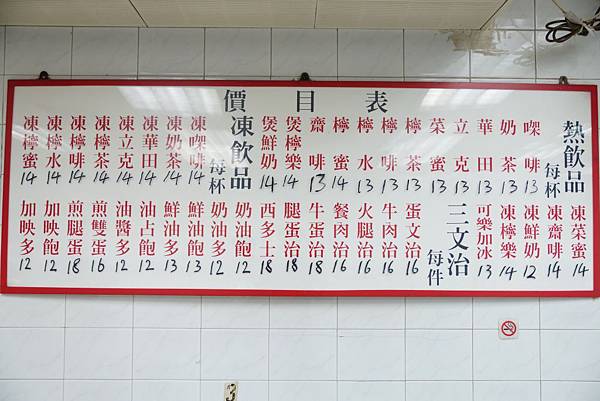 價目表
熱飲品
每杯
㗎啡 13
奶茶 13
華田 13
立克 13
菜蜜 13
檸茶 13
檸啡 13
檸水 13
檸蜜 14
齋啡 13
煲檸樂 14
煲鮮奶 14
凍飲品
每杯
凍㗎啡 14
凍奶茶 14
凍華田 14
凍立克 14
凍檸茶 14
凍檸啡 14
凍檸水 14
凍檸蜜 14
凍菜蜜 14
凍齋啡 14
凍鮮奶 12
凍檸樂 14
可樂加冰 13
三文治
每件
蛋文治 16
牛肉治 16
火腿治 16
餐肉治 16
牛蛋治 18
腿蛋治 18
西多士 18
奶油飽 12
奶油多 12
鮮油飽 13
鮮油多 13
油占飽 12
油醬多 12
煎雙蛋 16
煎腿蛋 18
加映飽 12
加映多 12
3